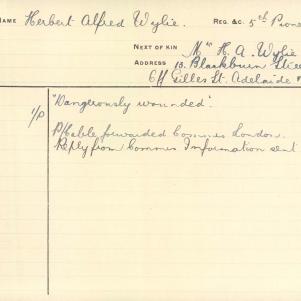 NAME Herbert Alfred Wylie. REG. &C. 5th Pione
NEXT OF KIN Mrs H. A. Wylie
ADDRESS 13. Blackburn Stre
off Gilles St. Adelaide
"Dangerously wounded".
P/Cable forwarded Commrs London.
Reply from Commrs Information sent